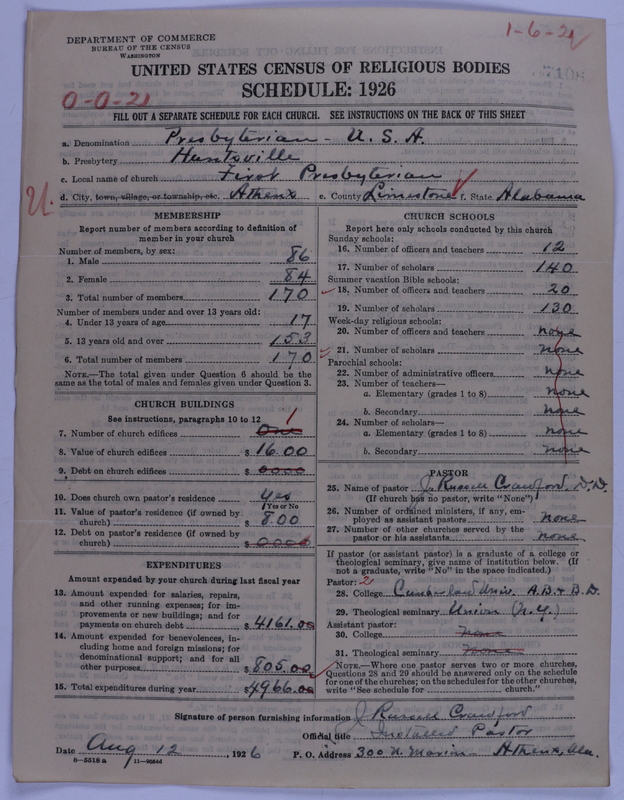 1-6-21
DEPARTMENT OF COMMERCE
BUREAU OF THE CENSUS
WASHINGTON
UNITED STATES CENSUS OF RELIGIOUS BODIES
SCHEDULE: 1926
0-0-21
FILL OUT A SEPARATE SCHEDULE FOR EACH CHURCH. SEE INSTRUCTIONS ON THE BACK OF THIS SHEET
a. Denomination Presbyterian - U. S. A.
b. Presbytery Huntsville
c. Local name of church First Presbyterian
U. d. City, town, village, or township, etc. Athens e. County Limestone f. State Alabama
MEMBERSHIP
Report number of members according to definition of
member in your church
Number of members, by sex:
1. Male 86
2. Female 84
3. Total number of members 170
Number of members under and over 13 years old:
4. Under 13 years of age 17
5. 13 years old and over 153
6. Total number of members 170
NOTE.—The total given under Question 6 should be the
same as the total of males and females given under Question 3.
CHURCH BUILDINGS
See instructions, paragraphs 10 to 12 1
7. Number of church edifices One
8. Value of church edifices $ 16.00
9. Debt on church edifices $ 0000
10. Does church own pastor's residence yes
(Yes or No)
11. Value of pastor's residence (if owned by
church) $ 8.00
12. Debt on pastor's residence (if owned by
church) $ 0000
EXPENDITURES
Amount expended by your church during last fiscal year
13. Amount expended for salaries, repairs,
and other running expenses; for im-
provements or new buildings; and for
payments on church debt $ 4161.00
14. Amount expended for benevolences, in-
cluding home and foreign missions; for
denominational support; and for all
other purposes $ 805.00
15. Total expenditures during year $ 4966.00
CHURCH SCHOOLS
Report here only schools conducted by this church
Sunday schools:
16. Number of officers and teachers 12
17. Number of scholars 140
Summer vacation Bible schools:
18. Number of officers and teachers 20
19. Number of scholars 130
Week-day religious schools:
20. Number of officers and teachers none
21. Number of scholars none
Parochial schools:
22. Number of administrative officers none
23. Number of teachers—
a. Elementary (grades 1 to 8) none
b. Secondary none
24. Number of scholars—
a. Elementary (grades 1 to 8) none
b. Secondary none
PASTOR
25. Name of pastor J. Russell Crawford, D.D.
(If church has no pastor, write "None")
26. Number of ordained ministers, if any, em-
ployed as assistant pastors none
27. Number of other churches served by the
pastor or his assistants none
If pastor (or assistant pastor) is a graduate of a college or
theological seminary, give name of institution below. (If
not a graduate, write "No" in the space indicated.)
Pastor: 2
28. College Cumberland Univ. A.B. & B.D.
29. Theological seminary Union (N.Y.)
Assistant pastor:
30. College none
31. Theological seminary none
NOTE.—Where one pastor serves two or more churches,
Questions 28 and 29 should be answered only on the schedule
for one of the churches; on the schedules for the other churches,
write "See schedule for church."
Signature of person furnishing information J. Russell Crawford
Official title Installed Pastor
Date Aug 12, 1926 P. O. Address 300 N. Marion - Athens, Ala.
8—5518 a 11—90544